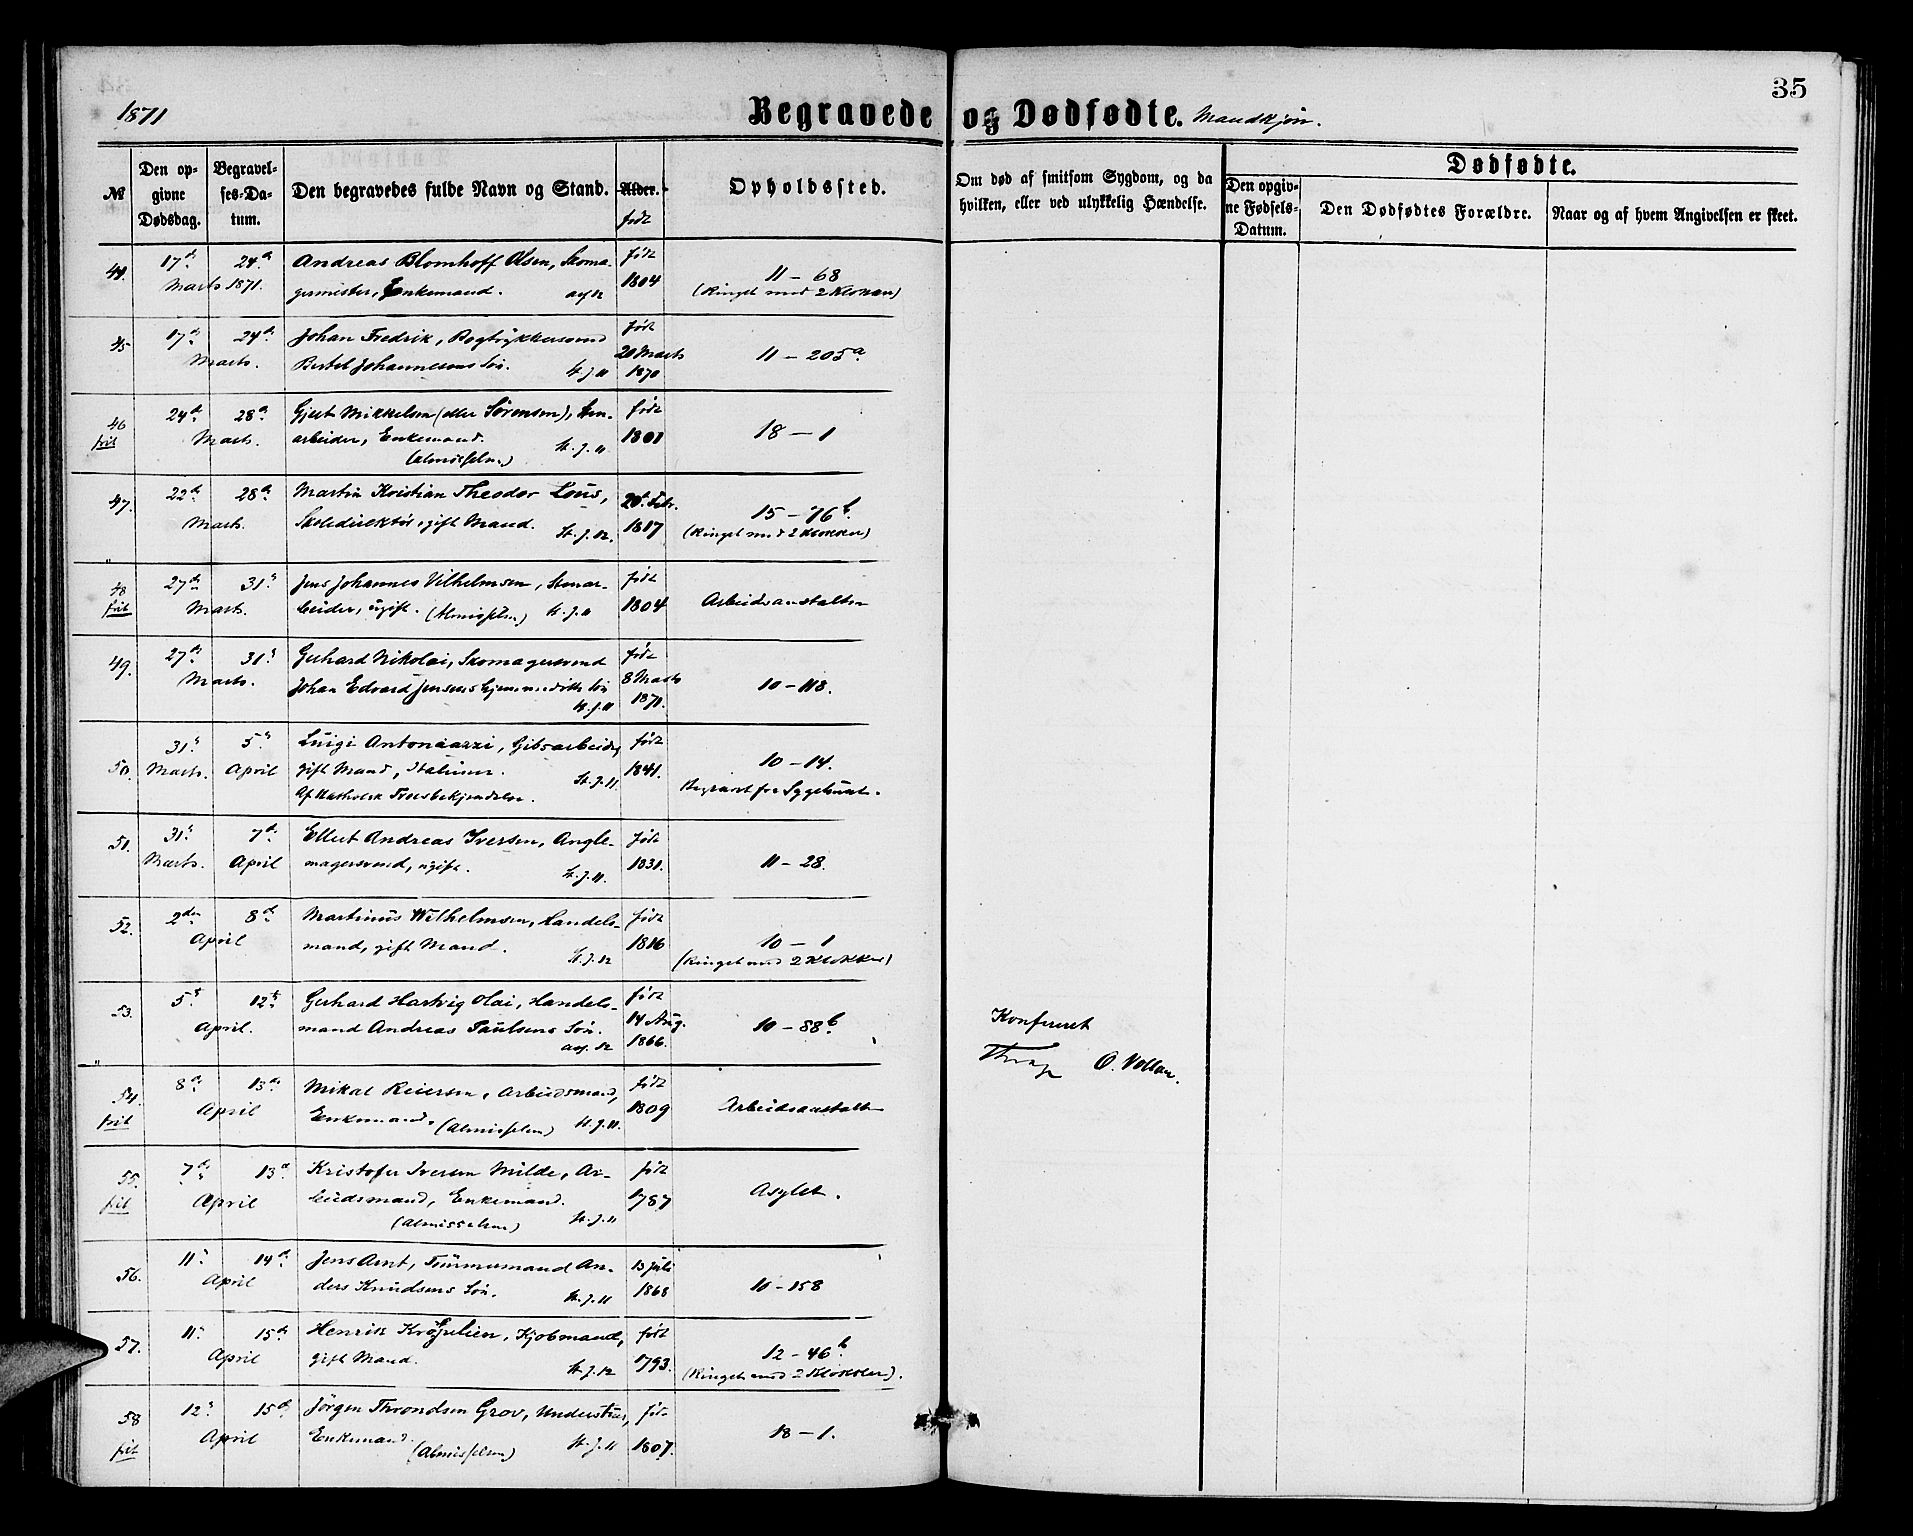 35
1871
Begravede og Dødfødte. Mandkjøn.
№
Den opgivne Dødsdag.
Begravelses-Datum.
Den begravedes fulde Navn og Stand.
Alder. født
Opholdssted.
Om død af smitsom Sygdom, og da hvilken, eller ved ulykkelig Hændelse.
Dødfødte.
Den opgivne Fødsels-Datum.
Den Dødfødtes Forældre.
Naar og af hvem Angivelsen er skeet.
44. 17de 24de Andreas Blomhoff Olsen, Skoma- født
Marts 1871. germester, Enkemand. 1804 11 – 68
(Ringet med 2 Klokker)
45 17de 24de Johan Fredrik, Bogtrykkersvend født
Marts. Bertel Johannesens Søn. St. J. 11 20 Marts 1870 11 – 205a
46 24de 28de Gjert Mikkelsen (eller Sørensen), født
frit Marts. arbeider, Enkemand. St. J. 11 1801 18 – 1
(Almisselem)
47. 22de 28de Martin Kristian Theodor Lous, 20de Febr.
Marts. Skoledirektør, gift Mand. St. J. 12. 1817 15 – 76b.
(Ringet med 2 Klokker)
48 27de 31te Jens Johannes Vilhelmsen, Stenar- født
frit Marts. beider, ugift. (Almisselem) St. J. 11 1804 Arbeidsanstalten
49. 27de 31te Gerhard Nikolai, Skomagersvend født
Marts. Johan Edvard Jensens hjemmedøbte Søn 8 Marts 10 – 118.
St. J. 11 1871.
50. 31te 5te Luigi Antoniazzi, Gibsarbeider, født
Marts. April gift Mand, Italiener. St. J. 11 1841. 10 – 14.
Af katholsk Troesbekjendelse. Begravet fra Sygehuset.
51. 31te 7de Ellert Andreas Iversen, Angle- født
Marts. April magersvend, ugift. St. J. 11. 1831. 11 – 28.
52. 2den 8de Martinus Wilhelmsen, Handels- født
April mand, gift Mand. St. J. 12 1816 10 – 1
(Ringet med 2 Klokker)
53. 5te 12te Gerhard Hartvig Olai, Handels- født
April. mand Andreas Paulsens Søn. 14 Aug. 1866. 10 – 88b.
Konfereret
O. Vollan.
54. 8de 13de Mikal Reiersen, Arbeidsmand, født
frit April Enkemand. (Almisselem) St. J. 11. 1809 Arbeidsanstalten
55. 7de 13de Kristofer Iversen Milde, Ar- født
frit April beidsmand, Enkemand. 1787 Asylet.
(Almisselem) St. J. 11
56. 11te 14de Jens Arnt, Tømmermand An- 13 Juli
April ders Knudsens Søn. St. J. 11 1868 10 – 158
57. 11te 15de Henrik Krøepelien, Kjøbmand, født
April gift Mand. St. J. 12 1793. 12 – 46b
(Ringet med 2 Klokker).
58 12te 15de Jørgen Throndsen Grov, født
frit April Enkemand. (Almisselem) St. J. 11 1807. 18 – 1.